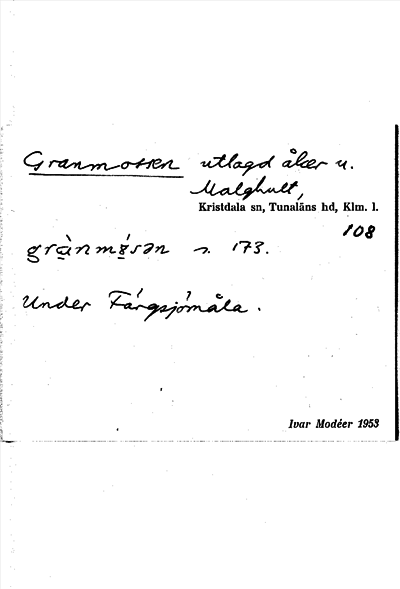 Granmossen utlagd åker u.
Malghult,
Kristdala sn, Tunaläns hd, Klm. l.
108
gràn m s. 173.
Under Färgsjömåla.
Ivar Modéer 1953